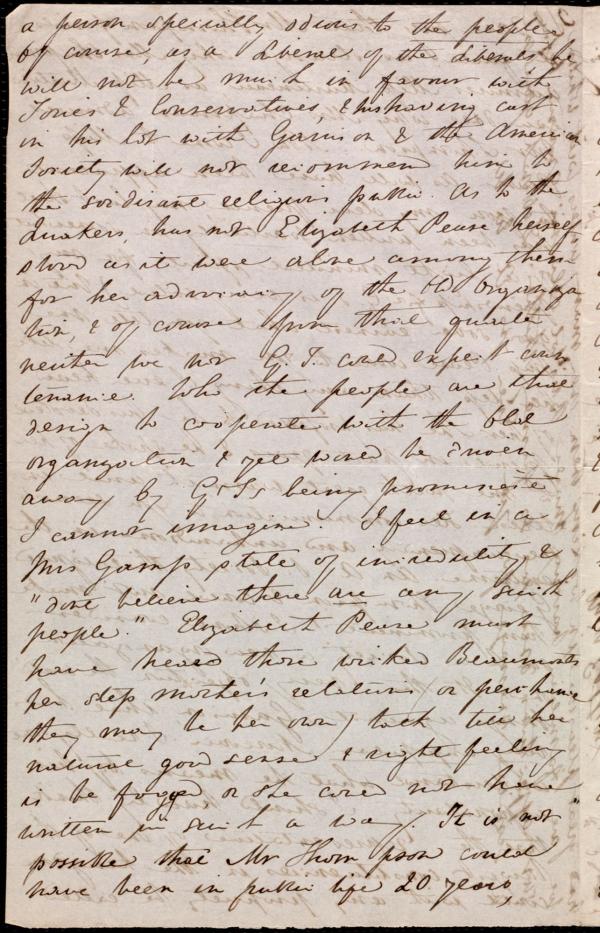 a person specially odious to the people,
of course, as a Liberal of the Liberals he
will not be much in favour with
Tories & Conservatives, & his having cast
in his lot with Garrison & the American
Society will not recommend him to
the soidisant religious public. As to the
Quakers, has not Elizabeth Pease herself
stood as it were alone among them
for her advocacy of the Old Organiza
tion, & of course from that quarter
neither we nor G. T. could expect coun
tenance. Who the people are that
design to cooperate with the old
organization & yet would be driven
away by G. T's being prominent
I cannot imagine. I feel in a
Mrs Gamp state of incredulity &
"dont believe there are any such
people." Elizabeth Pease must
have heard those wicked Beaumonts
her step mother's relations (or perchance
they may be her own) talk till her
natural good sense & right feeling
is be fogged, or she could not have
written in such a way. It is not
possible that Mr Thompson could
have been in public life 20 years,